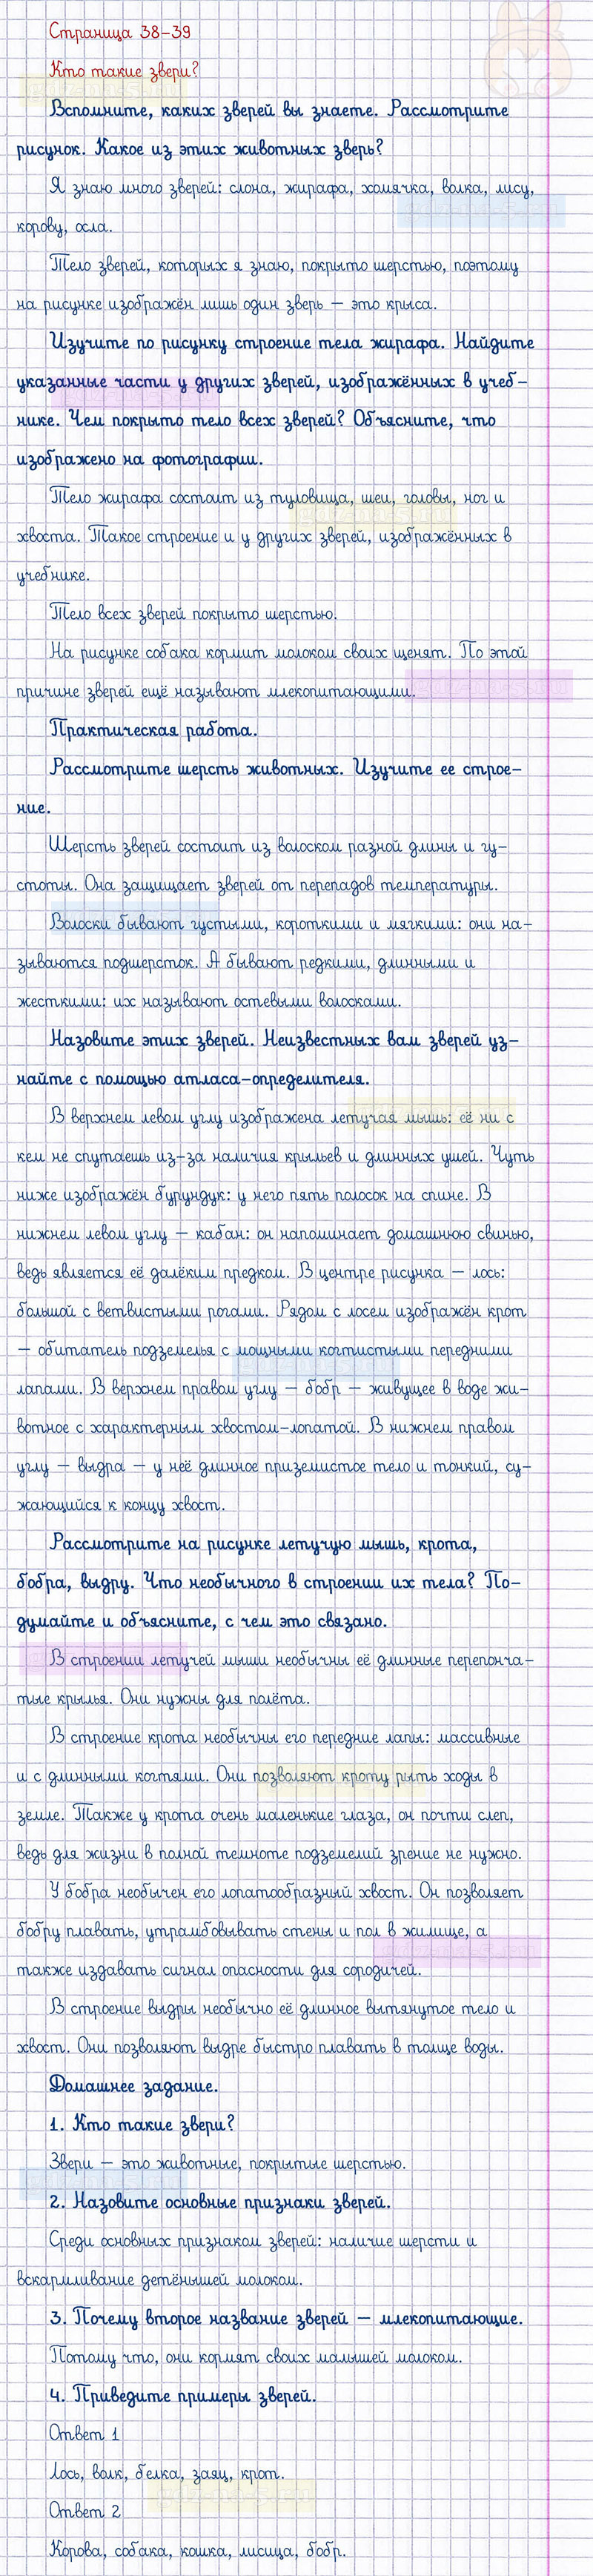 Страница 38-39
Кто такие звери?
Вспомните, каких зверей вы знаете. Рассмотрите
рисунок. Какое из этих животных зверь?
Я знаю много зверей: слона, жирафа, хомячка, волка, лису,
корову, осла.
Тело зверей, которых я знаю, покрыто шерстью, поэтому
на рисунке изображён лишь один зверь – это крыса.
Изучите по рисунку строение тела жирафа. Найдите
указанные части у других зверей, изображённых в учеб-
нике. Чем покрыто тело всех зверей? Объясните, что
изображено на фотографии.
Тело жирафа состоит из туловища, шеи, головы, ног и
хвоста. Такое строение и у других зверей, изображённых в
учебнике.
Тело всех зверей покрыто шерстью.
На рисунке собака кормит молоком своих щенят. По этой
причине зверей ещё называют млекопитающими.
Практическая работа.
Рассмотрите шерсть животных. Изучите ее строе-
ние.
Шерсть зверей состоит из волоском разной длины и гу-
стоты. Она защищает зверей от перепадов температуры.
Волоски бывают густыми, короткими и мягкими: они на-
зываются подшерсток. А бывают редкими, длинными и
жесткими: их называют остевыми волосками.
Назовите этих зверей. Неизвестных вам зверей уз-
найте с помощью атласа-определителя.
В верхнем левом углу изображена летучая мышь: её ни с
кем не спутаешь из-за наличия крыльев и длинных ушей. Чуть
ниже изображён бурундук: у него пять полосок на спине. В
нижнем левом углу – кабан: он напоминает домашнюю свинью,
ведь является её далёким предком. В центре рисунка – лось:
большой с ветвистыми рогами. Рядом с лосем изображён крот
– обитатель подземелья с мощными когтистыми передними
лапами. В верхнем правом углу – бобр – живущее в воде жи-
вотное с характерным хвостом-лопатой. В нижнем правом
углу – выдра – у неё длинное приземистое тело и тонкий, су-
жающийся к концу хвост.
Рассмотрите на рисунке летучую мышь, крота,
бобра, выдру. Что необычного в строении их тела? По-
думайте и объясните, с чем это связано.
В строении летучей мыши необычны её длинные перепонча-
тые крылья. Они нужны для полёта.
В строение крота необычны его передние лапы: массивные
и с длинными когтями. Они позволяют кроту рыть ходы в
земле. Также у крота очень маленькие глаза, он почти слеп,
ведь для жизни в полной темноте подземелий зрение не нужно.
У бобра необычен его лопатообразный хвост. Он позволяет
бобру плавать, утрамбовывать стены и пол в жилище, а
также издавать сигнал опасности для сородичей.
В строение выдры необычно её длинное вытянутое тело и
хвост. Они позволяют выдре быстро плавать в толще воды.
Домашнее задание.
1. Кто такие звери?
Звери – это животные, покрытые шерстью.
2. Назовите основные признаки зверей.
Среди основных признаком зверей: наличие шерсти и
вскармливание детёнышей молоком.
3. Почему второе название зверей – млекопитающие.
Потому что, они кормят своих малышей молоком.
4. Приведите примеры зверей.
Ответ 1
Лось, волк, белка, заяц, крот.
Ответ 2
Корова, собака, кошка, лисица, бобр.